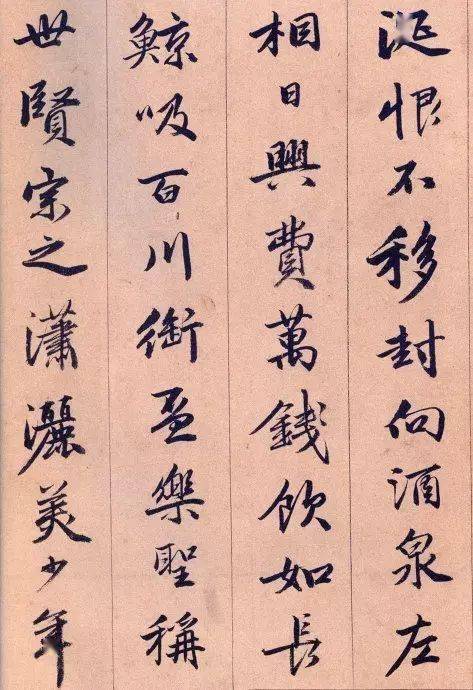 涎恨不移封向酒泉左
相日興費萬錢飲如長
鯨吸百川銜盃樂聖稱
世賢宗之瀟灑美少年